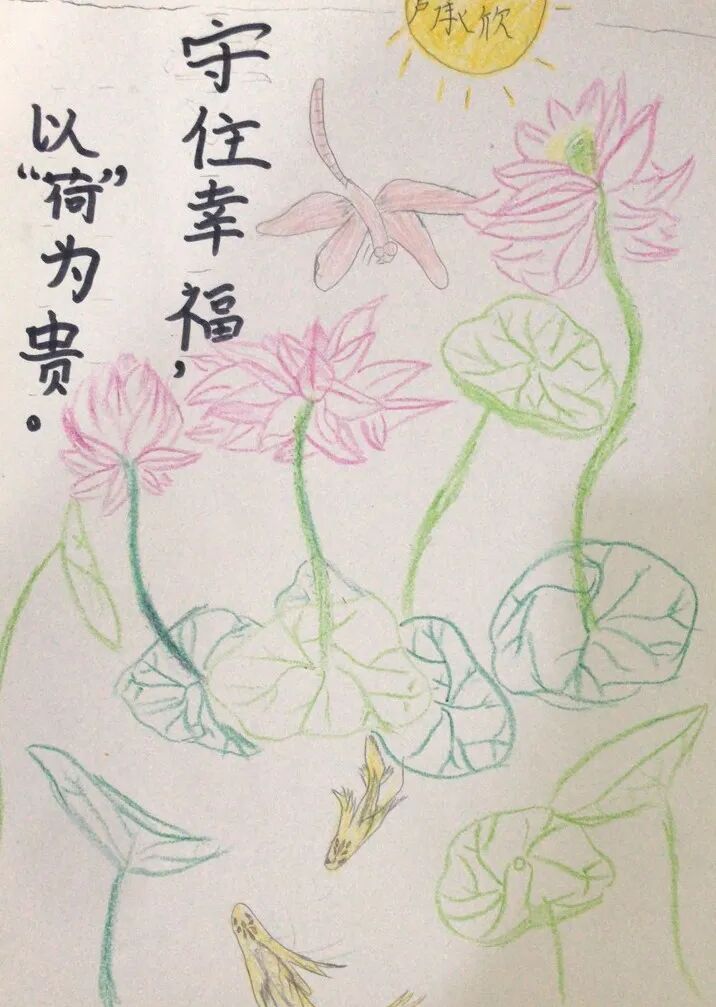 卢承欣
守住幸福，
以“荷”为贵。